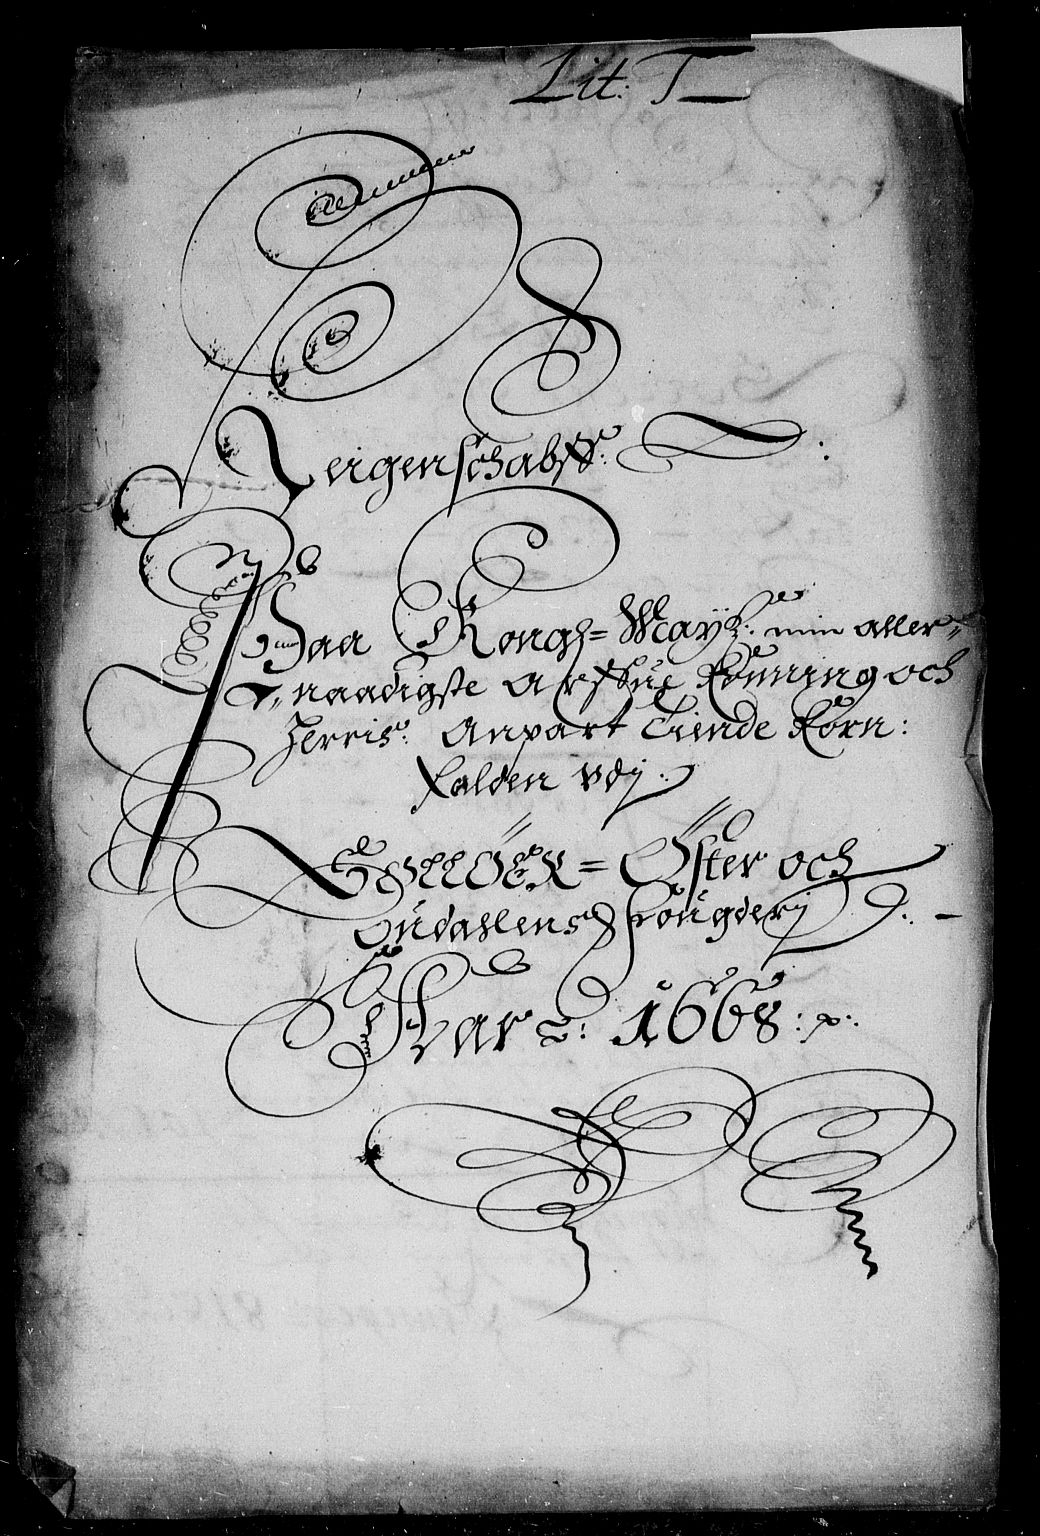 Lit: T
Reigenschabss:
Paa Kongl= Mayst: min aller=
naadigste Arffue Konning och
Herris: Anpart Tiende Korn:
falden vdj
Soløer= Øster och
Oudahlens Fougderj
Aar &: 1668: